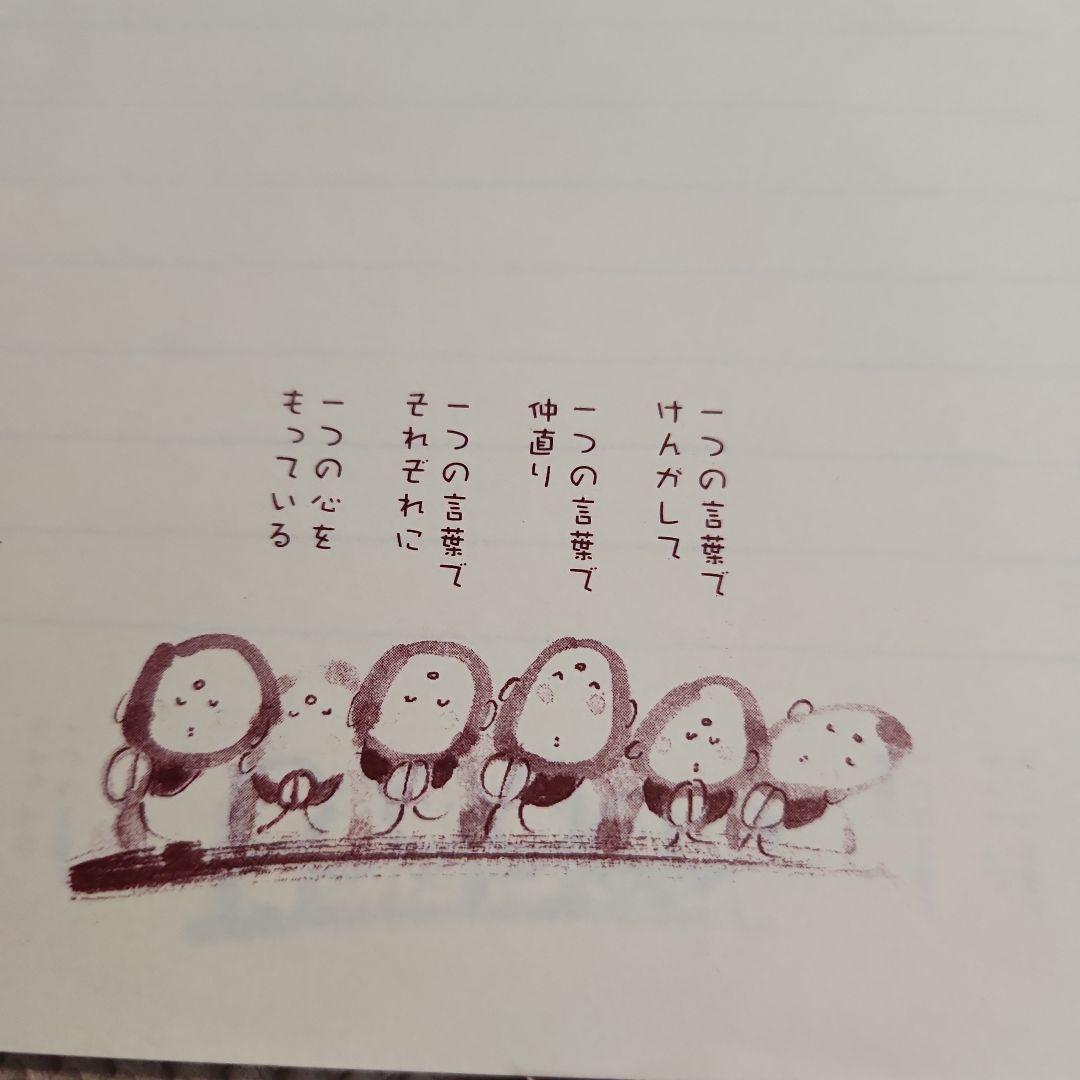 一つの言葉で
けんかして
一つの言葉で
仲直り
一つの言葉で
それぞれに
一つの心を
もっている